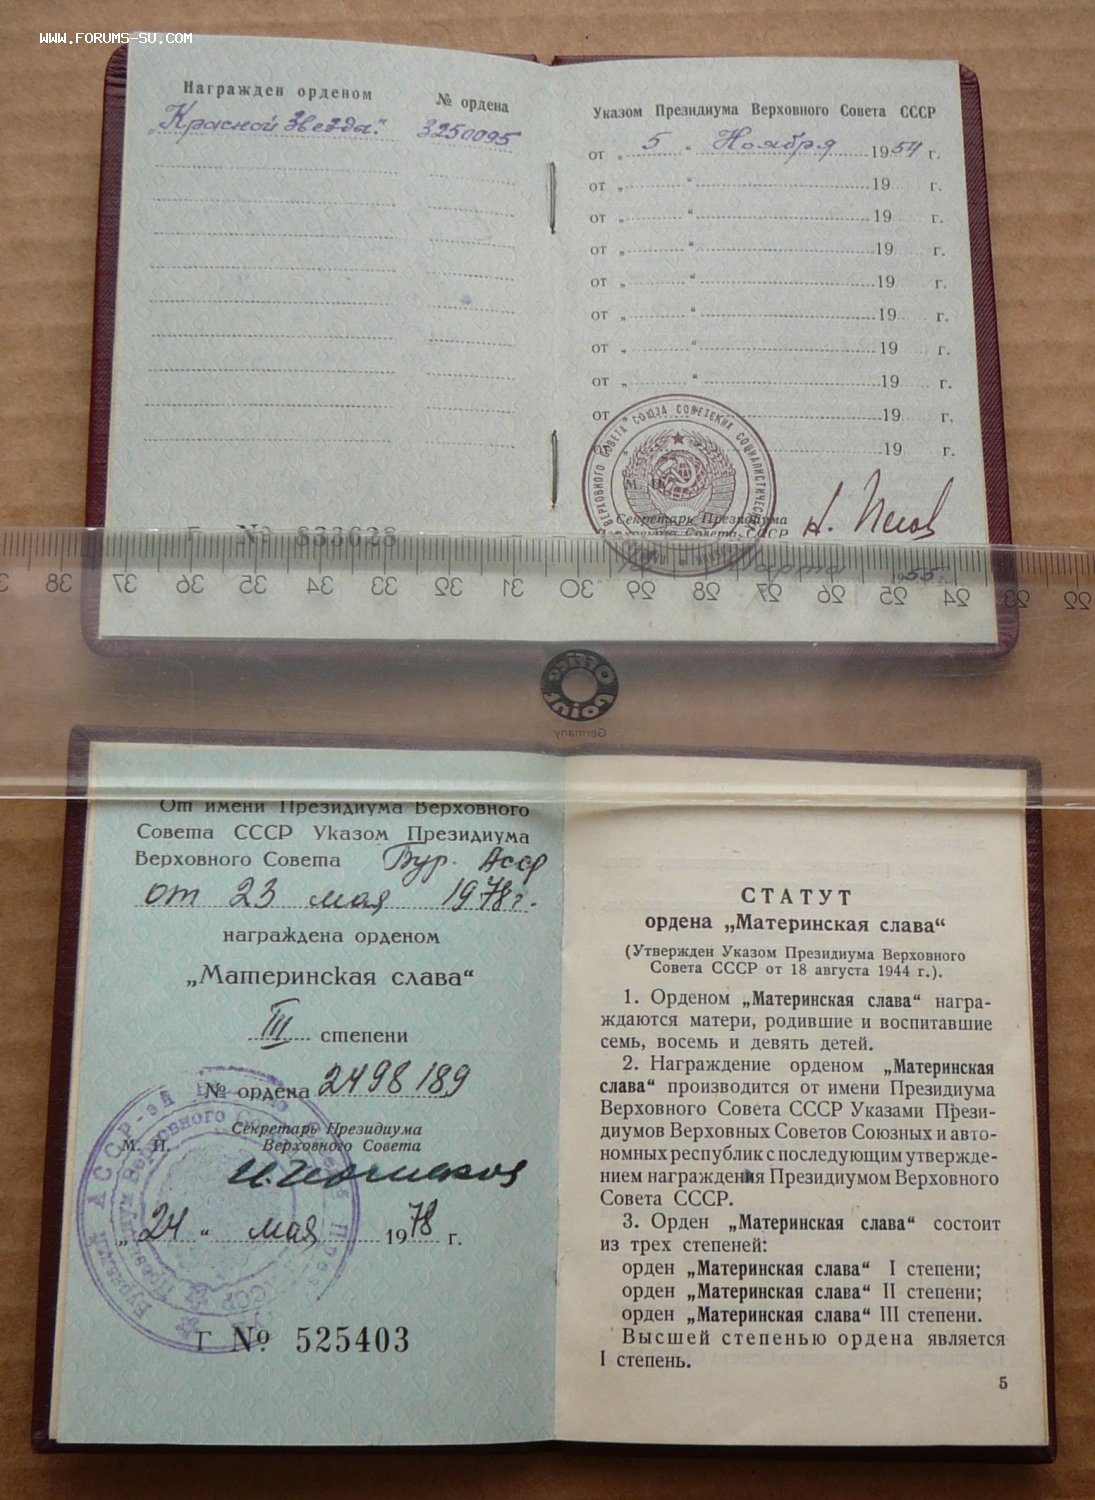 WWW.FORUMS-SU.COM
Награжден орденом
№ ордена
„Красной Звезды."
3250095
Указом Президиума Верховного Совета СССР
от „ 5 “ Ноября 1954 г.
от „ “ 19 г.
от „ “ 19 г.
от „ “ 19 г.
от „ “ 19 г.
от „ “ 19 г.
от „ “ 19 г.
от „ “ 19 г.
от 19 г.
19 г.
М. П.
Секретарь Президиума
Верховного Совета СССР
Н. Пегов
Марта 1955 г.
Г № 833628
38 37 36 35 34 33 32 31 30 29 28 27 26 25 24 23 22
Germany
От имени Президиума Верховного
Совета СССР Указом Президиума
Верховного Совета Бур. Асср
от 23 мая 1978 г.
награждена орденом
„Материнская слава“
III степени
№ ордена 2498189
Секретарь Президиума
М. П. Верховного Совета
„24“ мая 1978 г.
Г № 525403
СТАТУТ
ордена „Материнская слава“
(Утвержден Указом Президиума Верховного
Совета СССР от 18 августа 1944 г.).
1. Орденом „Материнская слава“ награ-
ждаются матери, родившие и воспитавшие
семь, восемь и девять детей.
2. Награждение орденом „Материнская
слава“ производится от имени Президиума
Верховного Совета СССР Указами Прези-
диумов Верховных Советов Союзных и авто-
номных республик с последующим утвержде-
нием награждения Президиумом Верховного
Совета СССР.
3. Орден „Материнская слава“ состоит
из трех степеней:
орден „Материнская слава“ I степени;
орден „Материнская слава“ II степени;
орден „Материнская слава“ III степени.
Высшей степенью ордена является
I степень.
5